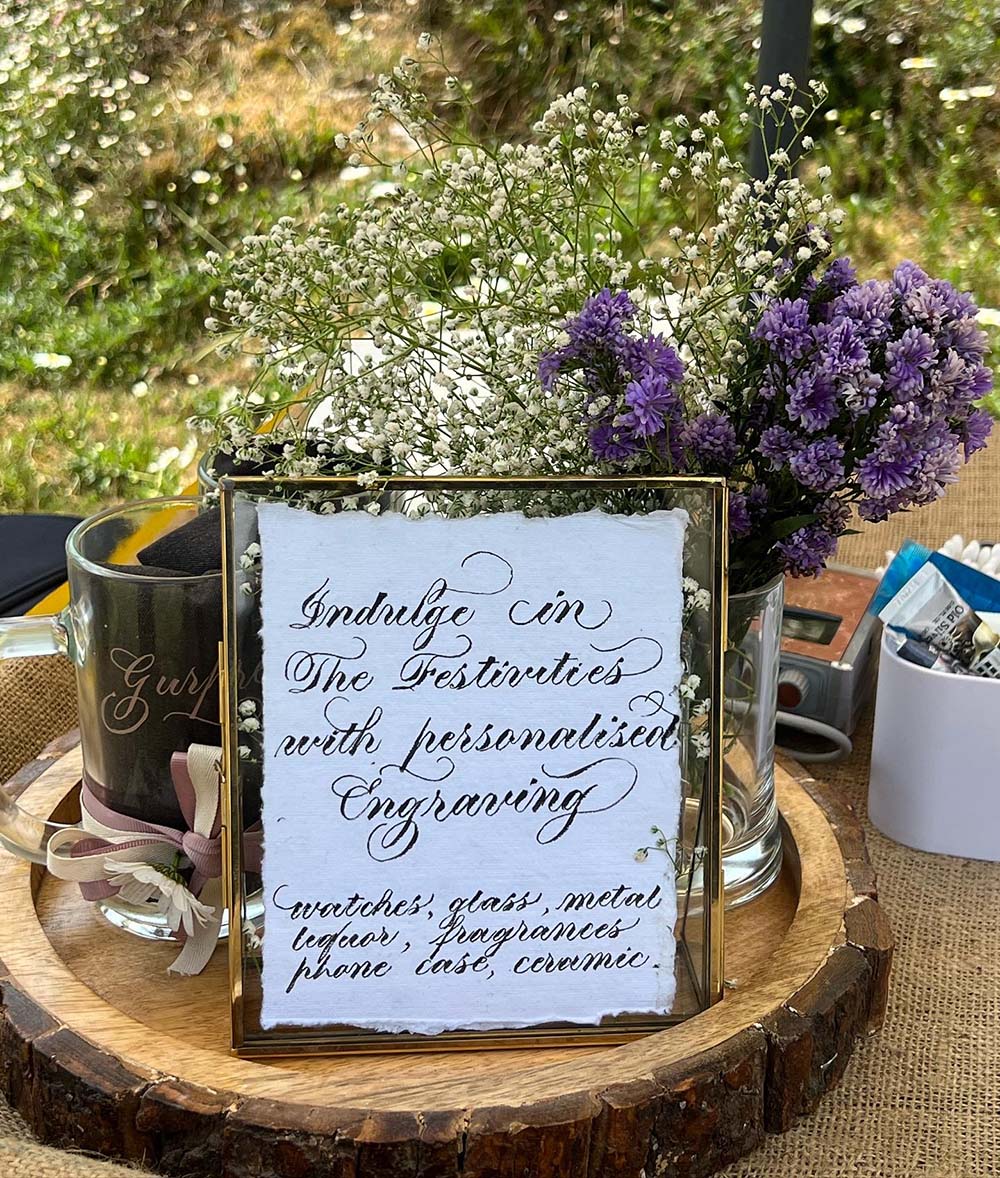 Indulge in
The Festivities
with personalised
Engraving
watches, glass, metal
liquor, fragrances
phone case, ceramic